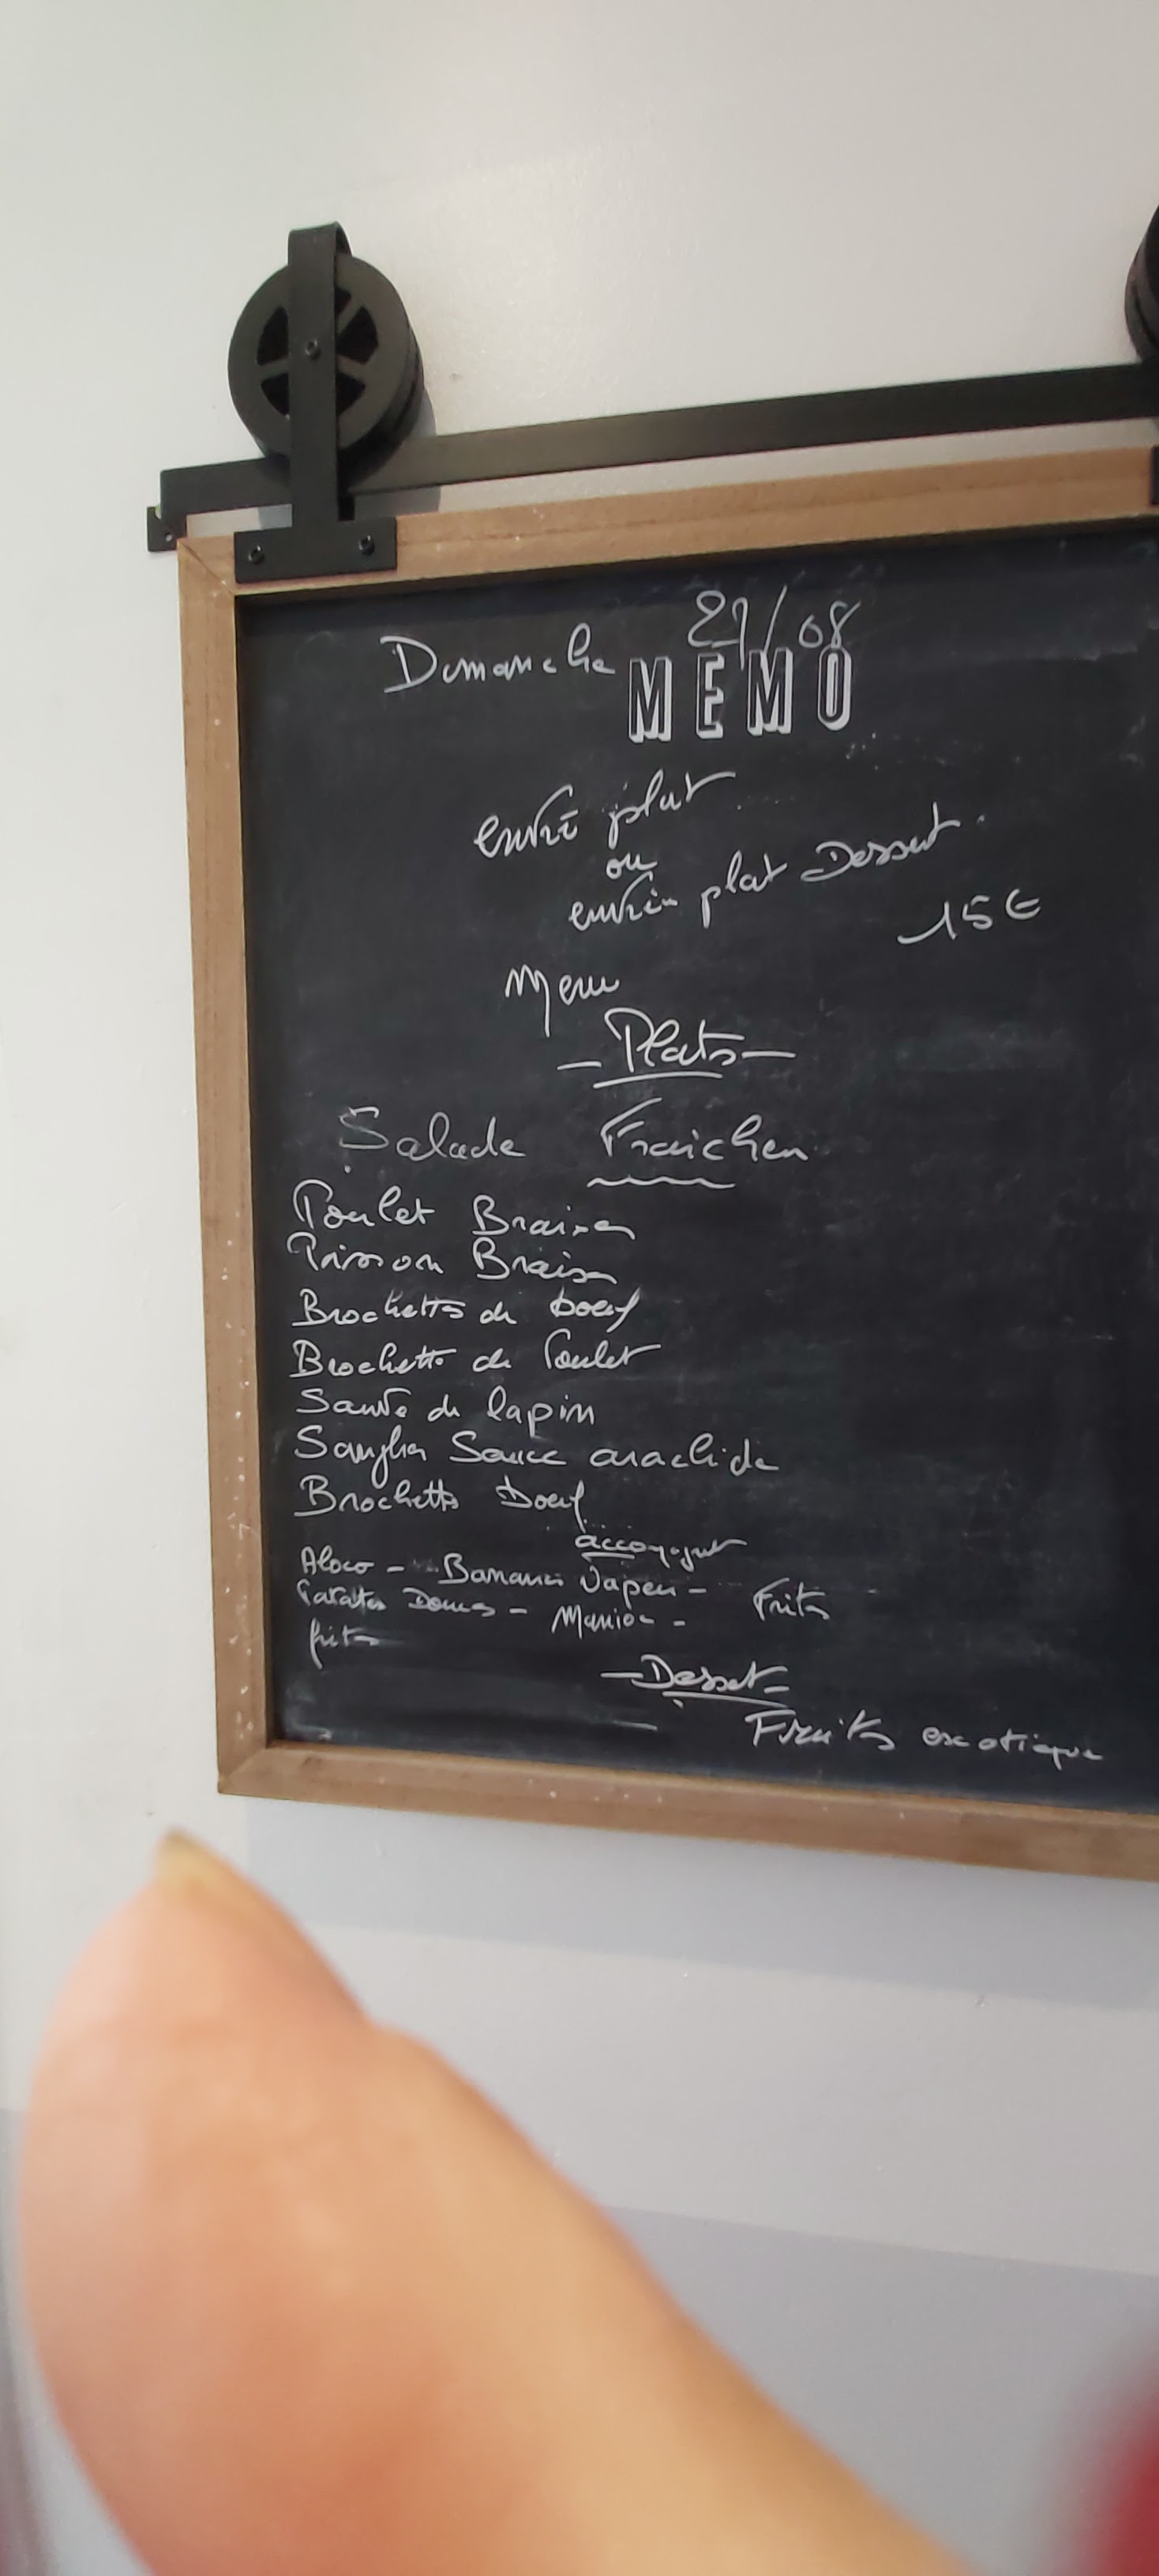 Dimanche 27/08
MEMO
entré plat
ou
entrée plat Dessert
15€
Menu
- Plats -
Salade Fraicheur
Poulet Braisé
Poisson Braisé
Brochettes de boeuf
Brochette de Poulet
Sauté de lapin
Sanglier Sauce arachide
Brochette boeuf
Aloco - Bananes Vapeur - Frits
Patates Douces - Manioc -
frits
- Dessert -
Fruits exotique